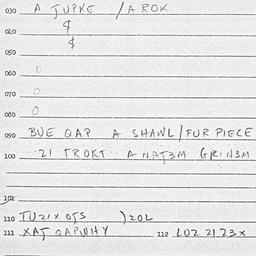 030 A JUPKE / A ROK
040 $
050 $
060 0
070 0
080 0
090 BUE QAP A SHAWL/FUR PIECE
100 21 TROKT A NAT3M GRIN3M
102
110 TU21X OJS )20L
111 XAT QAPWHY 112 LO2 2123X